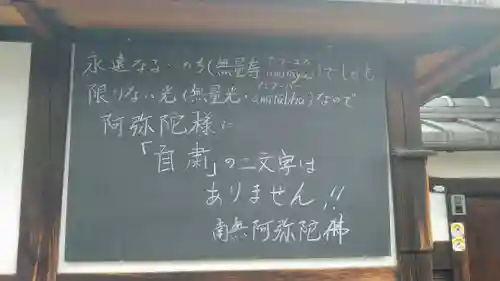 永遠なるいのち(無量寿 アミターユス amitāyus)でしかも
限りない光(無量光・アミターバ amitābha)なので
阿弥陀様に
「自粛」の二文字は
ありません!!
南無阿弥陀佛